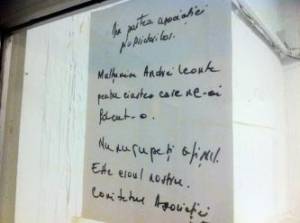 Din partea asociației
proprietarilor.
Mulțumim Andrei Leonte
pentru cinstea care ne-ai
făcut-o.
Nu nu rupeți afișul.
Este eroul nostru.
Comitetul Asociației